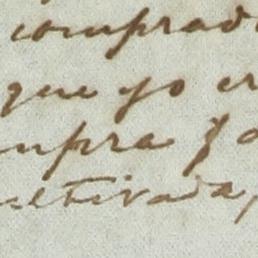 comprad
que yo cr
mpra y
ultivada,